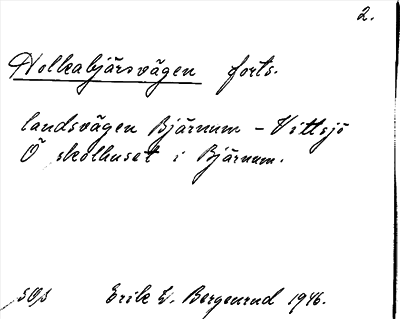 2.
Holkabjärsvägen forts.
landsvägen Bjärnum - Vittsjö
Ö skolhuset i Bjärnum.
Erik L. Bergenrud 1946.